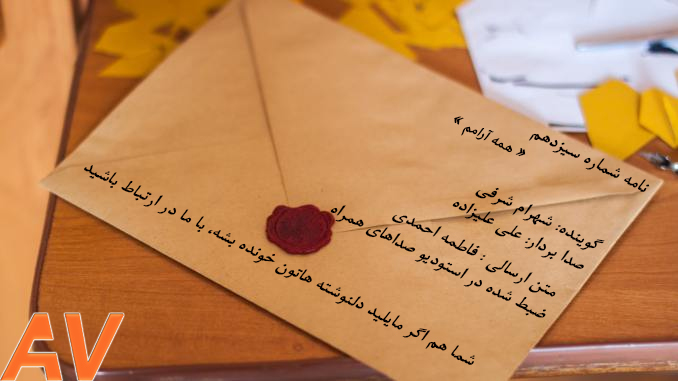 نامه شماره سیزدهم
« همه آرامم »
گوینده: شهرام شرفی
صدا بردار: علی علیزاده
متن ارسالی : فاطمه احمدی
ضبط شده در استودیو صداهای همراه
شما هم اگر مایلید دلنوشته هاتون خونده بشه، با ما در ارتباط باشید
AV